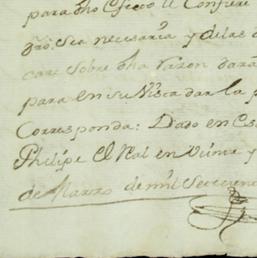 para dho Efecto le Confiere
sea necesaria y de las d
car sobre dha razon dara
para en su Vista dar la p
Corresponda: Dado en
Phelipe el Real en Veinte y
de Marzo de mil Setecien